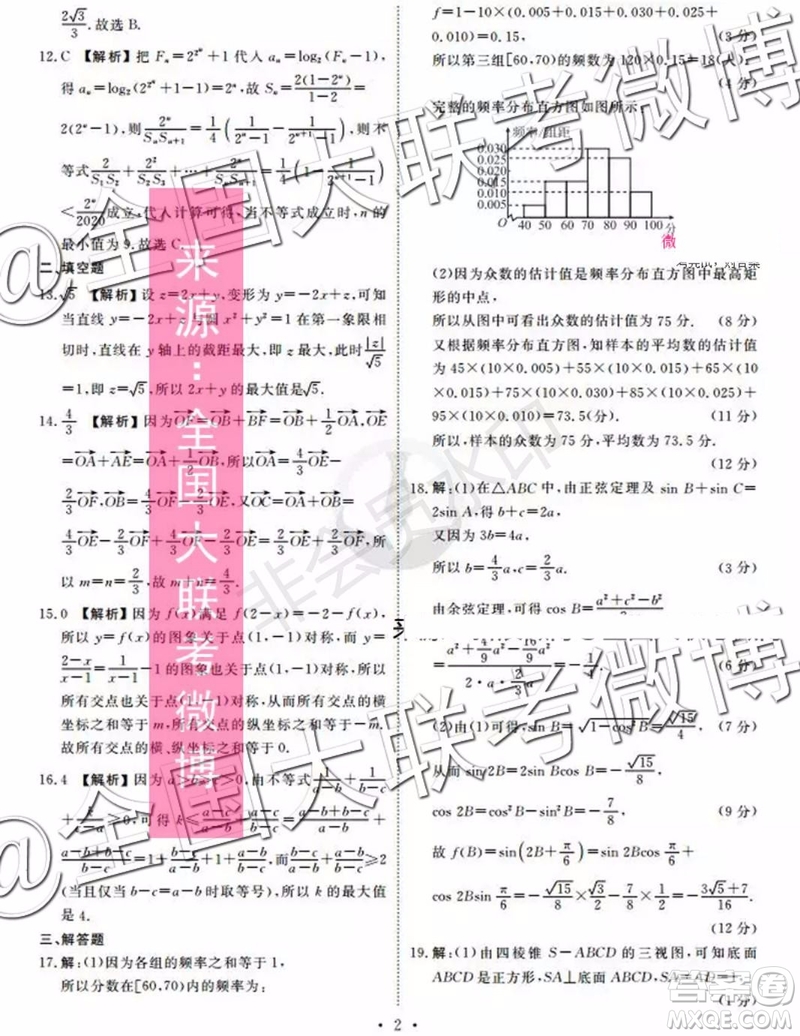 2√3/3. 故选 B.
12.C 【解析】把 F_n=2^(2^n)+1 代入 a_n=log₂(F_n-1),
得 a_n=log₂(2^(2^n)+1-1)=2^n, 故 S_n=2(1-2^n)/(1-2)=
2(2^n-1), 则 2^n/(S_nS_(n+1))=1/4(1/(2^n-1)-1/(2^(n+1)-1)), 则不
等式 2/(S₁S₂)+2²/(S₂S₃)+…+2^n/(S_nS_(n+1))=1/4(1-1/(2^(n+1)-1))
<2^n/2020 成立, 代入计算可得, 当不等式成立时, n 的
最小值为 9. 故选 C.
二、填空题
13.√5 【解析】设 z=2x+y, 变形为 y=-2x+z, 可知
当直线 y=-2x+z 与圆 x²+y²=1 在第一象限相
切时, 直线在 y 轴上的截距最大, 即 z 最大, 此时 |z|/√5
=1, 即 z=√5, 所以 2x+y 的最大值是√5.
14.4/3 【解析】因为 OF=OB+BF=OB+1/2OA, OE
=OA+AE=OA+1/2OB, 所以 OA=4/3OE-
2/3OF, OB=4/3OF-2/3OE, 又 OC=OA+OB=
4/3OE-2/3OF+4/3OF-2/3OE=2/3OE+2/3OF, 所
以 m=n=2/3, 故 m+n=4/3.
15.0 【解析】因为 f(x) 满足 f(2-x)=-2-f(x),
所以 y=f(x) 的图象关于点(1,-1)对称, 而 y=
(2-x)/(x-1)=1/(x-1)-1 的图象也关于点(1,-1)对称, 所以
所有交点也关于点(1,-1)对称, 从而所有交点的横
坐标之和等于 m, 所有交点的纵坐标之和等于-m,
故所有交点的横、纵坐标之和等于 0.
16.4 【解析】因为 a>b>c>0, 由不等式 1/(a-b)+1/(b-c)
+k/(c-a)≥0, 可得 k≤(a-c)/(a-b)+(a-c)/(b-c)=(a-b+b-c)/(a-b)+
(a-b+b-c)/(b-c)=1+(b-c)/(a-b)+1+(a-b)/(b-c), 而(b-c)/(a-b)+(a-b)/(b-c)≥2
(当且仅当 b-c=a-b 时取等号), 所以 k 的最大值
是 4.
三、解答题
17.解:(1)因为各组的频率之和等于 1,
所以分数在[60,70)内的频率为:
f=1-10×(0.005+0.015+0.030+0.025+
0.010)=0.15, (3 分)
所以第三组[60,70)的频数为 120×0.15=18(人).
(4 分)
完整的频率分布直方图如图所示:
频率/组距
0.030
0.025
0.015
0.010
0.005
O 40 50 60 70 80 90 100 分
微
(2)因为众数的估计值是频率分布直方图中最高矩
形的中点,
所以从图中可看出众数的估计值为 75 分. (8 分)
又根据频率分布直方图, 知样本的平均数的估计值
为 45×(10×0.005)+55×(10×0.015)+65×(10
×0.015)+75×(10×0.030)+85×(10×0.025)+
95×(10×0.010)=73.5(分). (11 分)
所以, 样本的众数为 75 分, 平均数为 73.5 分.
(12 分)
18.解:(1)在△ABC 中, 由正弦定理及 sin B+sin C=
2sin A, 得 b+c=2a,
又因为 3b=4a,
所以 b=4/3a, c=2/3a. (3 分)
由余弦定理可得 cos B=(a²+c²-b²)
=(a²+4/9a²-16/9a²)/(2·a·2/3a)=-1/4. (6 分)
(2)由(1)可得, sin B=√(1-cos²B)=√15/4. (7 分)
从而 sin 2B=2sin Bcos B=-√15/8,
cos 2B=cos²B-sin²B=-7/8, (9 分)
故 f(B)=sin(2B+π/6)=sin 2Bcos π/6+
cos 2Bsin π/6=-√15/8×√3/2-7/8×1/2=-(3√5+7)/16.
(12 分)
19.解:(1)由四棱锥 S-ABCD 的三视图, 可知底面
ABCD 是正方形, SA⊥底面 ABCD, SA=AD=1.
(1 分)
· 2 ·
来源：全国大联考微博
@全国大联考微博
@全国大联考微博
非会员水印
答案圈
MXQE.COM